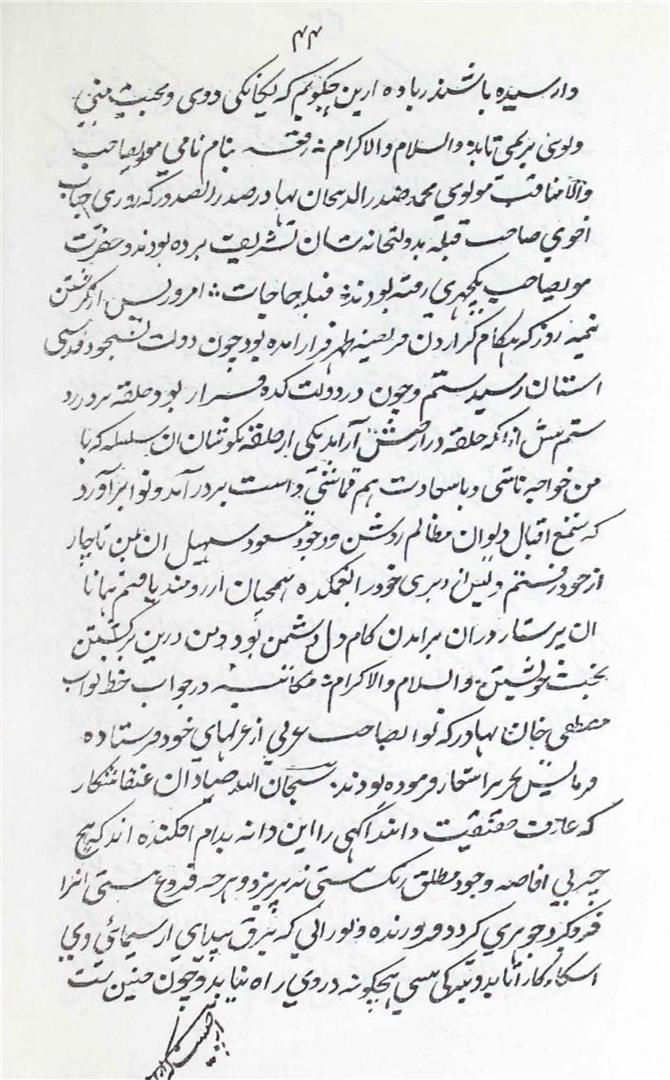 ۴۴
وارسیده باشند زیاده ازین چگویم که یگانگی و دوی و محبت منی
و توئی بر نمی تابد والسلام والاکرام؛ رقعه بنام نامی مولویصاحب
والا مناقب مولوی محمد صدرالدینخان بهادر صدر الصدور که روزی جناب
اخوی صاحب قبله بدولتخانه شان تشریف برده بودند و حضرت
مولویصاحب بکچهری رفته بودند؛ قبله حاجات؛ امروز پس از گذشتن
نیمه روز که هنگام گزاردن فریضه ظهر فرا آمده بود چون دولت سجود قدسی
استان رسید ستم و چون در دولت کده فراز بود حلقه بر در زد
ستم پیش از انکه حلقه در از جنبش آرامد یکی از حلقه بگوشان ان سلسله که با
من خواجه تاشی و با سعادت هم قماشی داشت بدر آمد و نوا برآورد
که شمع اقبال دیوان مظالم روشن و وجود مسعود سهیل ان یمن ناچار
از خود رفتم و لیکن رهبری خود را بغمکده همچنان آرزومند یافتم همانا
ان پرستار دران برآمدن کام دل دشمن بود و من درین برگشتن
بخت خویشتن والسلام والاکرام؛ مکاتبه در جواب خط نواب
مصطفی خان بهادر که نوابصاحب غزلی از غزلهای خود فرستاده
فرمایش تحریر اشعار فرموده بودند سبحان الله صیادان عنقا شکار
که عارف حقیقت دانند آگهی را این دانه بدام افکنده اند که هیچ
چیز بی افاضه وجود مطلق رنگ هستی نه پزیرد و هرچه فروغ هستی انرا
فروگیرد جوهری گردد فروزنده و نورانی که بیرق پیدایی از سیمای وی
اشکارا تابد و تیرگی نیستی هیچگونه در وی راه نیابد و چون چنین ست